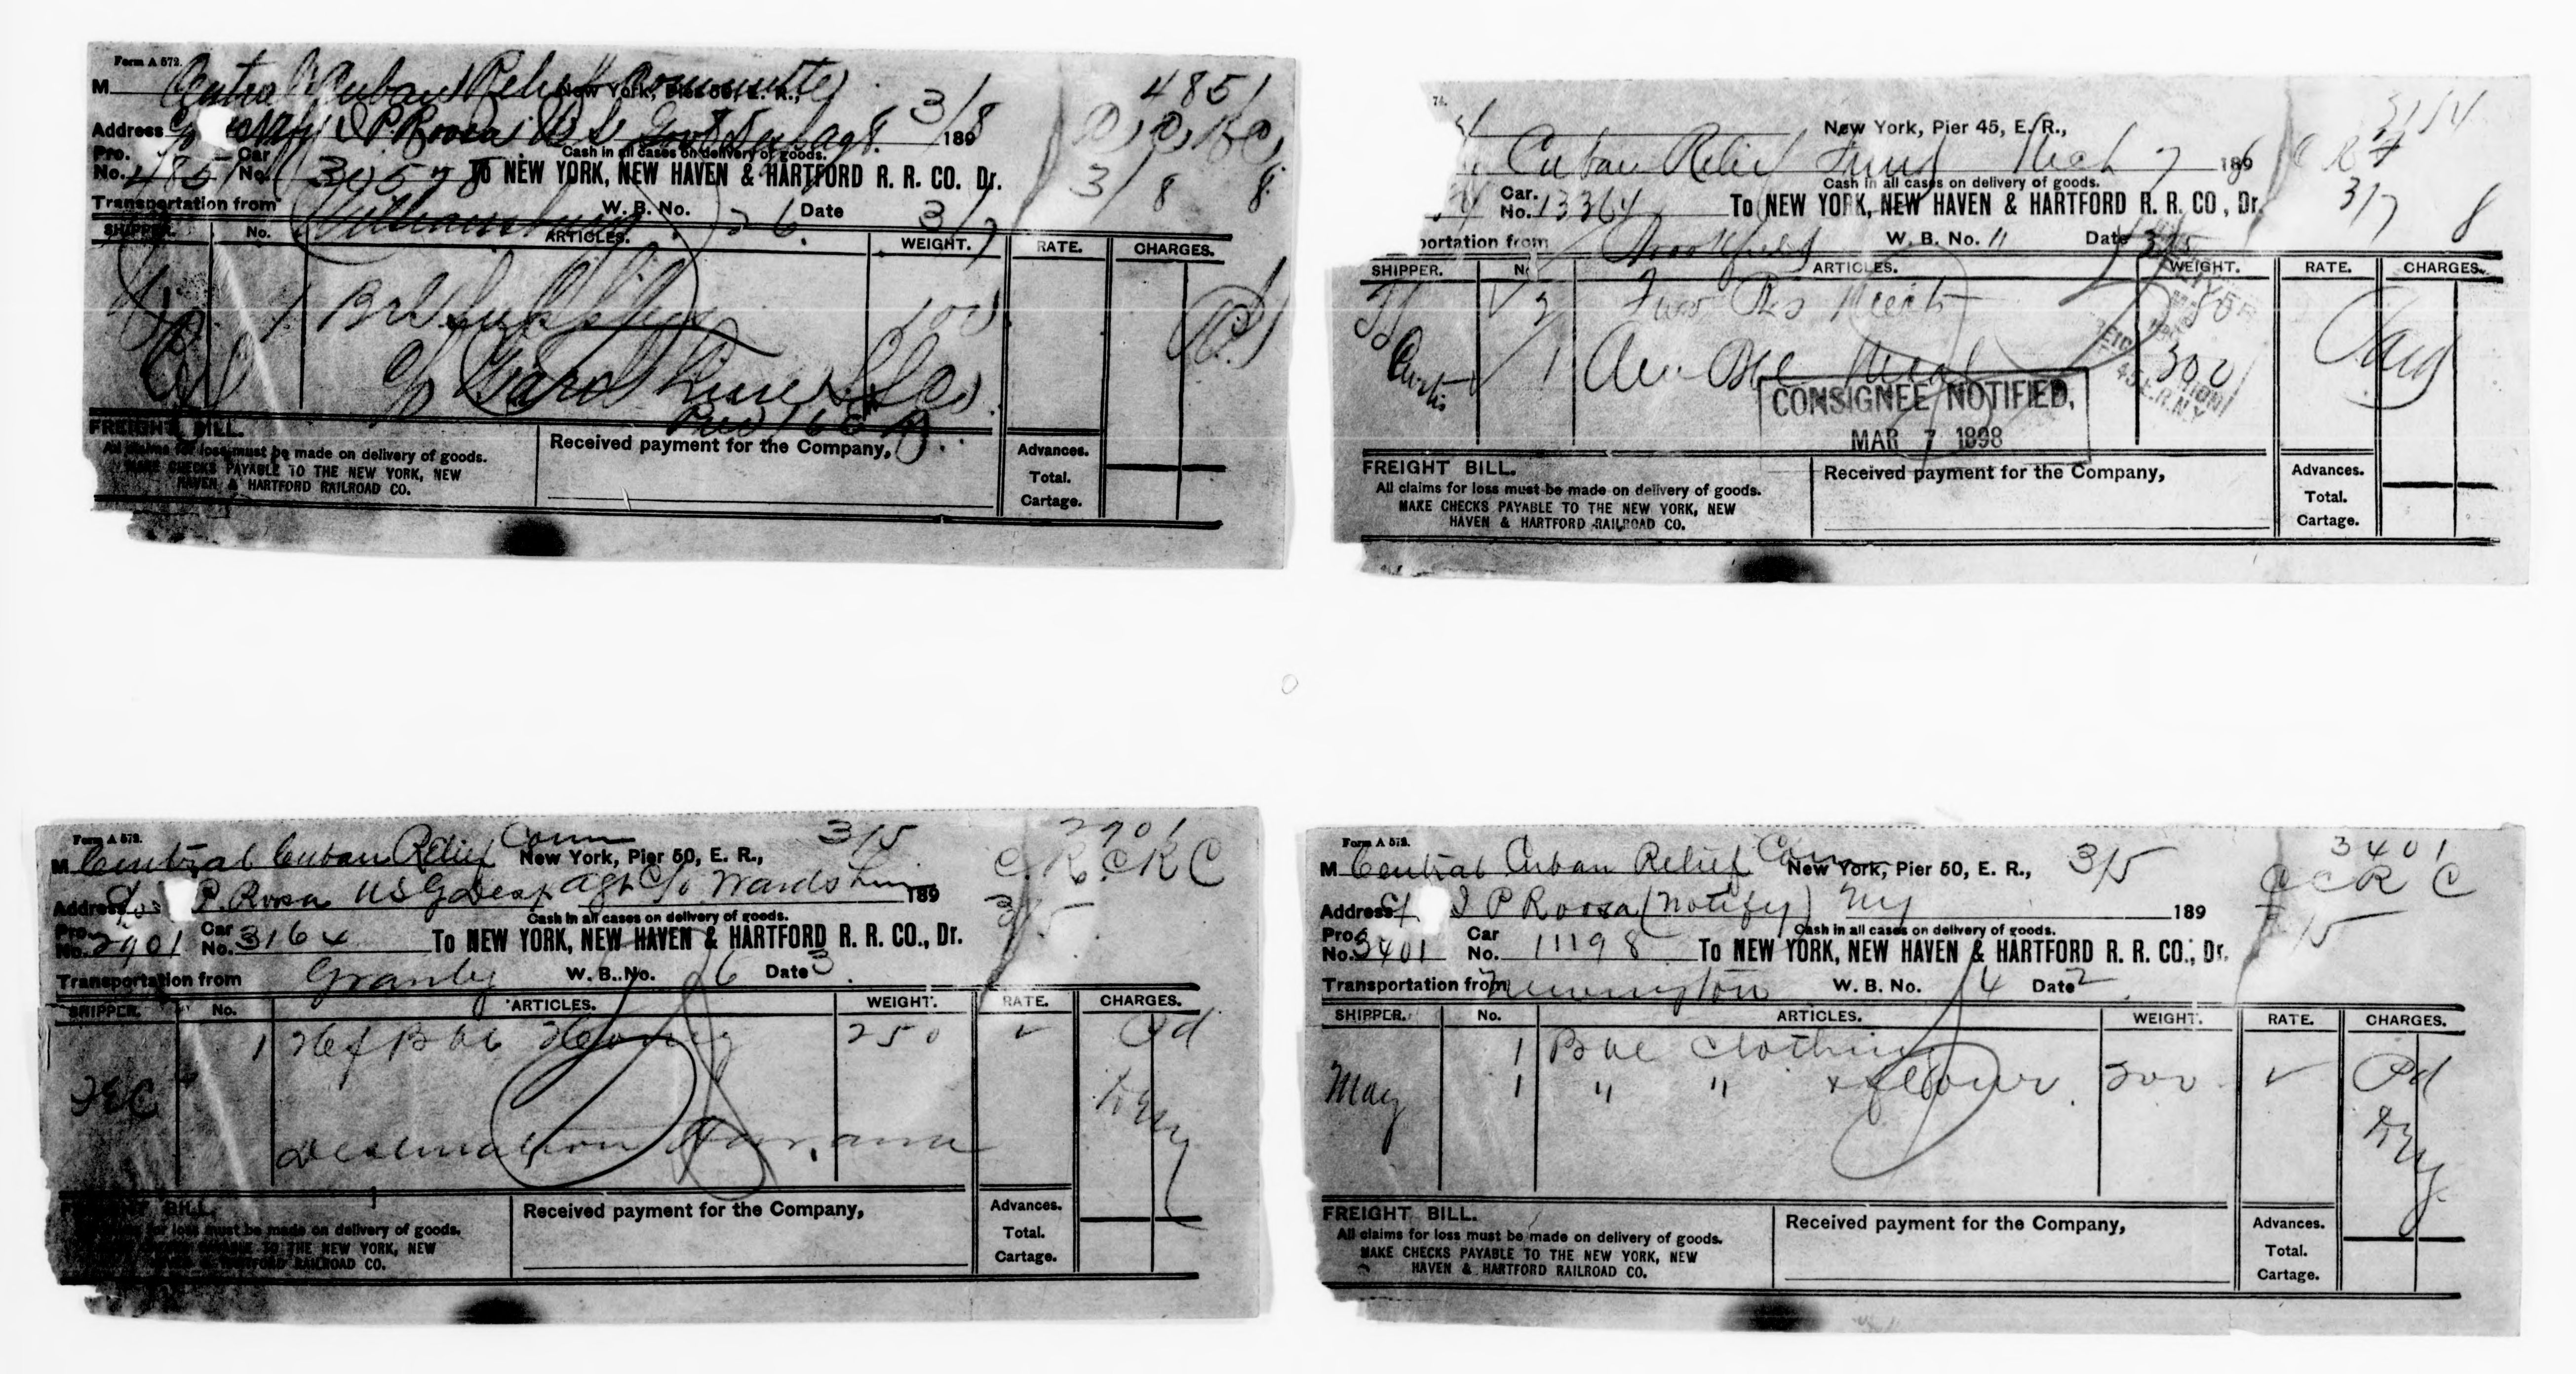 Form A 572.
4851
M Central Cuban Relief Committee
New York, Pier 50, E. R.,
3/8
Address Notify I P. Roosa U S Govt Des agt. 189
Cash in all cases on delivery of goods.
Pro. No. 4851 Car No. 30578 To NEW YORK, NEW HAVEN & HARTFORD R. R. CO. Dr.
3/8 8
Transportation from Williamsburg W. B. No. 26 Date 3/7
SHIPPER. No. ARTICLES. WEIGHT. RATE. CHARGES.
1 Brl 100
c/o Ward Line S S Co
Pier 16 E R
FREIGHT BILL.
All claims for loss must be made on delivery of goods.
MAKE CHECKS PAYABLE TO THE NEW YORK, NEW
HAVEN & HARTFORD RAILROAD CO.
Received payment for the Company,
Advances.
Total.
Cartage.
New York, Pier 45, E. R.,
Cuban Relief Fund Mch 7 189
Cash in all cases on delivery of goods.
Car. No. 13364 To NEW YORK, NEW HAVEN & HARTFORD R. R. CO, Dr.
3/7 8
portation from Brookfield W. B. No. 11 Date 3/5
SHIPPER. No. ARTICLES. WEIGHT. RATE. CHARGES.
2 Two Bxs 50
Curtis 1 One Bbl Meal 300 Paid
CONSIGNEE NOTIFIED,
MAR 7 1898
FREIGHT BILL.
All claims for loss must be made on delivery of goods.
MAKE CHECKS PAYABLE TO THE NEW YORK, NEW
HAVEN & HARTFORD RAILROAD CO.
Received payment for the Company,
Advances.
Total.
Cartage.
Form A 572.
2901
M Central Cuban Relief Comm New York, Pier 50, E. R., 3/5
C. R. C R C
Address P. Rosa U S G Desp agt c/o Wards Line 189
3/5
Cash in all cases on delivery of goods.
Pro. No. 2901 Car No. 3164 To NEW YORK, NEW HAVEN & HARTFORD R. R. CO., Dr.
Transportation from Granby W. B. No. 6 Date 3
SHIPPER. No. ARTICLES. WEIGHT. RATE. CHARGES.
1 Hf Bbl 250 Pd
Destination Havana
FREIGHT BILL.
All claims for loss must be made on delivery of goods.
MAKE CHECKS PAYABLE TO THE NEW YORK, NEW
HAVEN & HARTFORD RAILROAD CO.
Received payment for the Company,
Advances.
Total.
Cartage.
Form A 572.
3401
M Central Cuban Relief Com New York, Pier 50, E. R., 3/5
C C R C
Address I P Roosa (Notify) NY 189
3/5
Cash in all cases on delivery of goods.
Pro. No. 3401 Car No. 11198 To NEW YORK, NEW HAVEN & HARTFORD R. R. CO., Dr.
Transportation from Newington W. B. No. 4 Date 2
SHIPPER. No. ARTICLES. WEIGHT. RATE. CHARGES.
1 Bbl Clothing
May 1 " " & flour 200 Pd
FREIGHT BILL.
All claims for loss must be made on delivery of goods.
MAKE CHECKS PAYABLE TO THE NEW YORK, NEW
HAVEN & HARTFORD RAILROAD CO.
Received payment for the Company,
Advances.
Total.
Cartage.